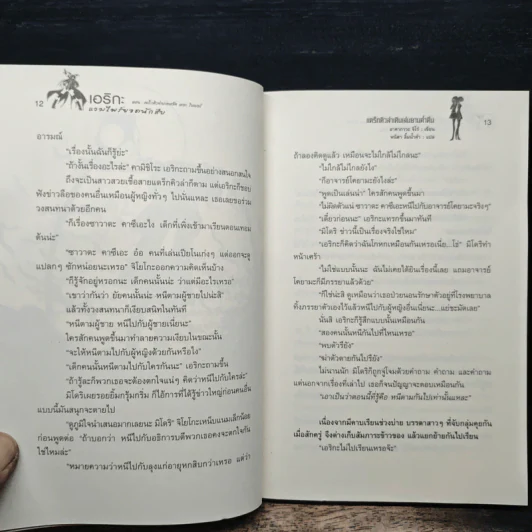 12
เอริกะ
อารมณ์
"เรื่องนั้นฉันก็รู้ย่ะ"
"ถ้างั้นเรื่องอะไรล่ะ" คามิชิโระ เอริกะถามขึ้นอย่างสนอกสนใจ
ถึงจะเป็นสาวสวยเชื้อสายแดร็กคิวล่าก็ตาม แต่เอริกะก็ชอบ
ฟังข่าวลือของคนอื่นเหมือนผู้หญิงทั่วๆ ไปนั่นแหละ เธอเลยขอร่วม
วงสนทนาด้วยอีกคน
"ก็เรื่องซาวาดะ คาซึเอะไง เด็กที่เพิ่งเข้ามาเรียนตอนเทอม
ต้นน่ะ"
"ซาวาดะ คาซึเอะ อ๋อ คนที่เล่นเปียโนเก่งๆ แต่ออกจะดู
แปลกๆ ซักหน่อยนะเหรอ" จิโยโกะออกความคิดเห็นบ้าง
"ก็รู้จักอยู่หรอกนะ เด็กคนนั้นน่ะ ว่าแต่มีอะไรเหรอ"
"เขาว่ากันว่า ยัยคนนั้นน่ะ หนีตามผู้ชายไปน่ะสิ"
แล้วทั้งวงสนทนาก็เงียบสนิทในทันที
"หนีตามผู้ชาย หนีไปกับผู้ชายเนี่ยนะ"
ใครสักคนพูดขึ้นมาทำลายความเงียบในขณะนั้น
"จะให้หนีตามไปกับผู้หญิงด้วยกันหรือไง"
"เด็กคนนั้นหนีตามไปกับใครกันนะ" เอริกะถามขึ้น
"ถ้ารู้ละก็พวกเธอจะต้องตกใจแน่ๆ คิดว่าหนีไปกับใครล่ะ"
มิโดริเผยรอยยิ้มกรุ้มกริ่ม ก็ไอ้การที่ได้รู้ข่าวใหญ่ก่อนคนอื่น
แบบนี้มันสนุกจะตายไป
"ดูภูมิใจนำเสนอมากเลยนะ มิโดริ" จิโยโกะเหน็บแนมเล็กน้อย
ก่อนพูดต่อ "ถ้าบอกว่า หนีไปกับอธิการบดีพวกเธอคงจะตกใจกัน
ใช่ไหมล่ะ"
"หมายความว่าหนีไปกับลุงแก่อายุหกสิบกว่าเหรอ แต่ว่า
แดร็กคิวล่าเดินเล่นยามค่ำคืน
13
อาคากาวะ จิโร่ : เขียน
ถ้าลองคิดดูแล้ว เหมือนจะไม่ใกล้ไม่ไกลนะ"
"ไม่ใกล้ไม่ไกลยังไง"
"ก็อาจารย์โคยามะยังไงล่ะ"
"พูดเป็นเล่นน่า" ใครสักคนพูดขึ้นมา
"ไม่ผิดตัวแน่ ซาวาดะ คาซึเอะหนีไปกับอาจารย์โคยามะจริงๆ"
"เดี๋ยวก่อนนะ" เอริกะแทรกขึ้นมาทันที
"มิโดริ ข่าวนี้เป็นเรื่องจริงใช่ไหม"
"เอริกะก็คิดว่าฉันโกหกเหมือนกันเหรอเนี่ย...โธ่" มิโดริทำ
หน้าเศร้า
"ไม่ใช่แบบนั้นนะ ฉันไม่เคยได้ยินเรื่องนี้เลย แถมอาจารย์
โคยามะก็มีภรรยาแล้วด้วย"
"ก็ใช่น่ะสิ ดูเหมือนว่าเธอป่วยนอนรักษาตัวอยู่ที่โรงพยาบาล
ทิ้งภรรยาตัวเองไว้แล้วหนีไปกับผู้หญิงอื่นเนี่ยนะ...แย่ชะมัดเลย"
นั่นสิ เอริกะก็รู้สึกแบบนั้นเหมือนกัน
"สองคนนั้นหนีกันไปที่ไหนเหรอ"
"พบตัวรึยัง"
"ฆ่าตัวตายกันไปรึยัง"
ไม่นานนัก มิโดริก็ถูกจู่โจมด้วยคำถาม คำถาม และคำถาม
แต่นอกจากเรื่องที่เล่าไป เธอก็จนปัญญาจะตอบเหมือนกัน
"เอาเป็นว่าตอนนี้ที่รู้คือ หนีตามกันไปเท่านั้นแหละ"
เนื่องจากมีคาบเรียนช่วงบ่าย บรรดาสาวๆ ที่จับกลุ่มคุยกัน
เมื่อสักครู่ จึงต่างเก็บสัมภาระข้าวของ แล้วแยกย้ายกันไปเรียน
"เอริกะไม่ไปเรียนเหรอจ๊ะ"